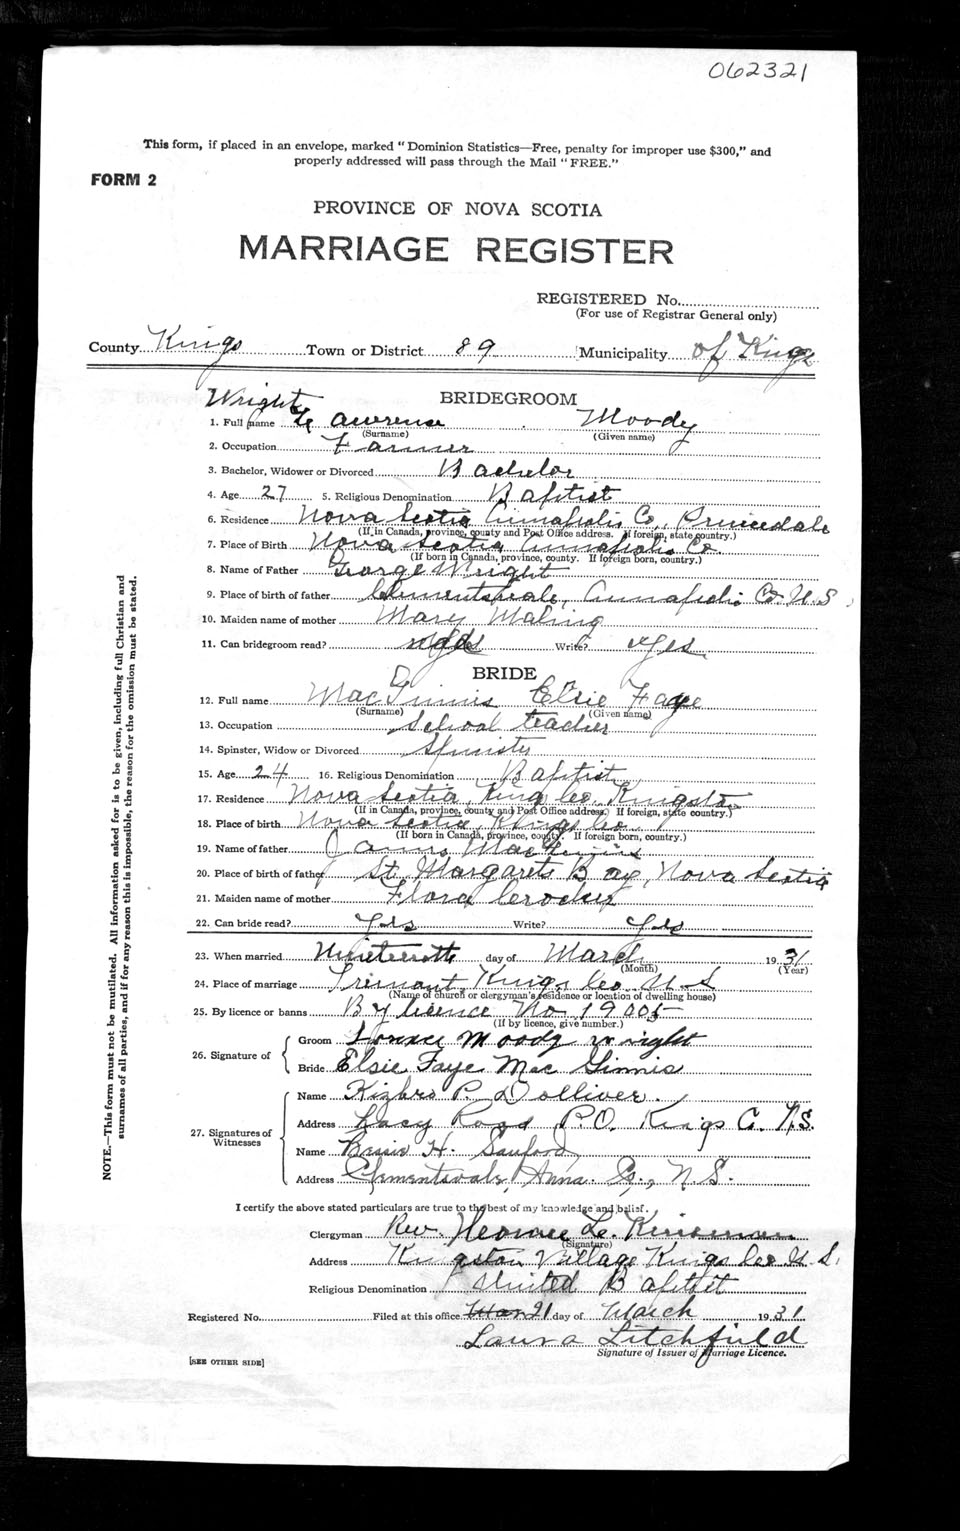 062321
This form, if placed in an envelope, marked "Dominion Statistics—Free, penalty for improper use $300," and
properly addressed will pass through the Mail "FREE."
FORM 2
PROVINCE OF NOVA SCOTIA
MARRIAGE REGISTER
REGISTERED No.
(For use of Registrar General only)
County Kings Town or District 89 Municipality of Kings
Wright BRIDEGROOM
1. Full name Lawrence Moody
(Surname) (Given name)
2. Occupation Farmer
3. Bachelor, Widower or Divorced Bachelor
4. Age 27 5. Religious Denomination Baptist
6. Residence Nova Scotia Annapolis Co, Princedale
(If in Canada, province, county and Post Office address. If foreign, state country.)
7. Place of Birth Nova Scotia Annapolis Co
(If born in Canada, province, county. If foreign born, country.)
8. Name of Father George Wright
9. Place of birth of father Clementsvale, Annapolis Co. N.S,
10. Maiden name of mother Mary Maling
11. Can bridegroom read? Write? Yes
BRIDE
12. Full name MacGinnis Elsie Faye
(Surname) (Given name)
13. Occupation School teacher
14. Spinster, Widow or Divorced Spinster
15. Age 24 16. Religious Denomination Baptist
17. Residence Nova Scotia, Kings Co. Kingston
(If in Canada, province, county and Post Office address. If foreign, state country.)
18. Place of birth Nova Scotia, Kings Co.
(If born in Canada, province, county. If foreign born, country.)
19. Name of father James MacGinnis
20. Place of birth of father St. Margarets Bay, Nova Scotia
21. Maiden name of mother Flora Crocker
22. Can bride read? Yes Write? Yes
23. When married Nineteenth day of March 1931
(Month) (Year)
24. Place of marriage Tremont, Kings Co. N.S
(Name of church or clergyman's residence or location of dwelling house)
25. By licence or banns By licence No. 19005
(If by licence, give number.)
26. Signature of
Groom Moody Wright
Bride Elsie Faye MacGinnis
27. Signatures of Witnesses
Name P. Dolliver.
Address Lacy Road P.O. Kings C. N.S.
Name Bessie H. Sanford
Address Clementsvale, Anna. Co., N.S.
I certify the above stated particulars are true to the best of my knowledge and belief.
Clergyman Rev.
(Signature)
Address Kingston Village Kings Co N.S.
Religious Denomination United Baptist
Registered No. Filed at this office Mar 21 day of March 1931
Laura Litchfield
Signature of Issuer of Marriage Licence.
[SEE OTHER SIDE]
NOTE.—This form must not be mutilated. All information asked for is to be given, including full Christian and
surnames of all parties, and if for any reason this is impossible, the reason for the omission must be stated.